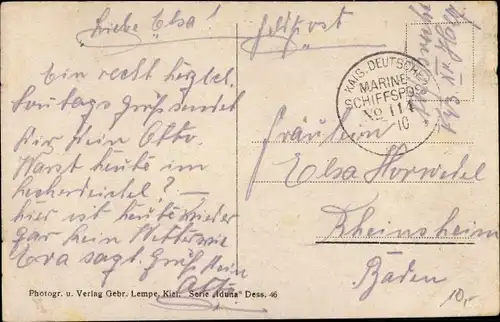 Liebe Elsa!
Feldpost
Ein recht herzl.
Sonntags Gruß sendet
Dir Dein Otto.
Warst heute im
hier ist heute wieder
gar kein Wetter wie
Eva sagt. Gruß Dein
Otto
KAIS. DEUTSCHE
MARINE-
SCHIFFSPOST
No 114
10
Fräulein
Elsa Horwedel
Rheinsheim
Baden
10,-
Photogr. u. Verlag Gebr. Lempe, Kiel. Serie „Iduna“ Dess. 46